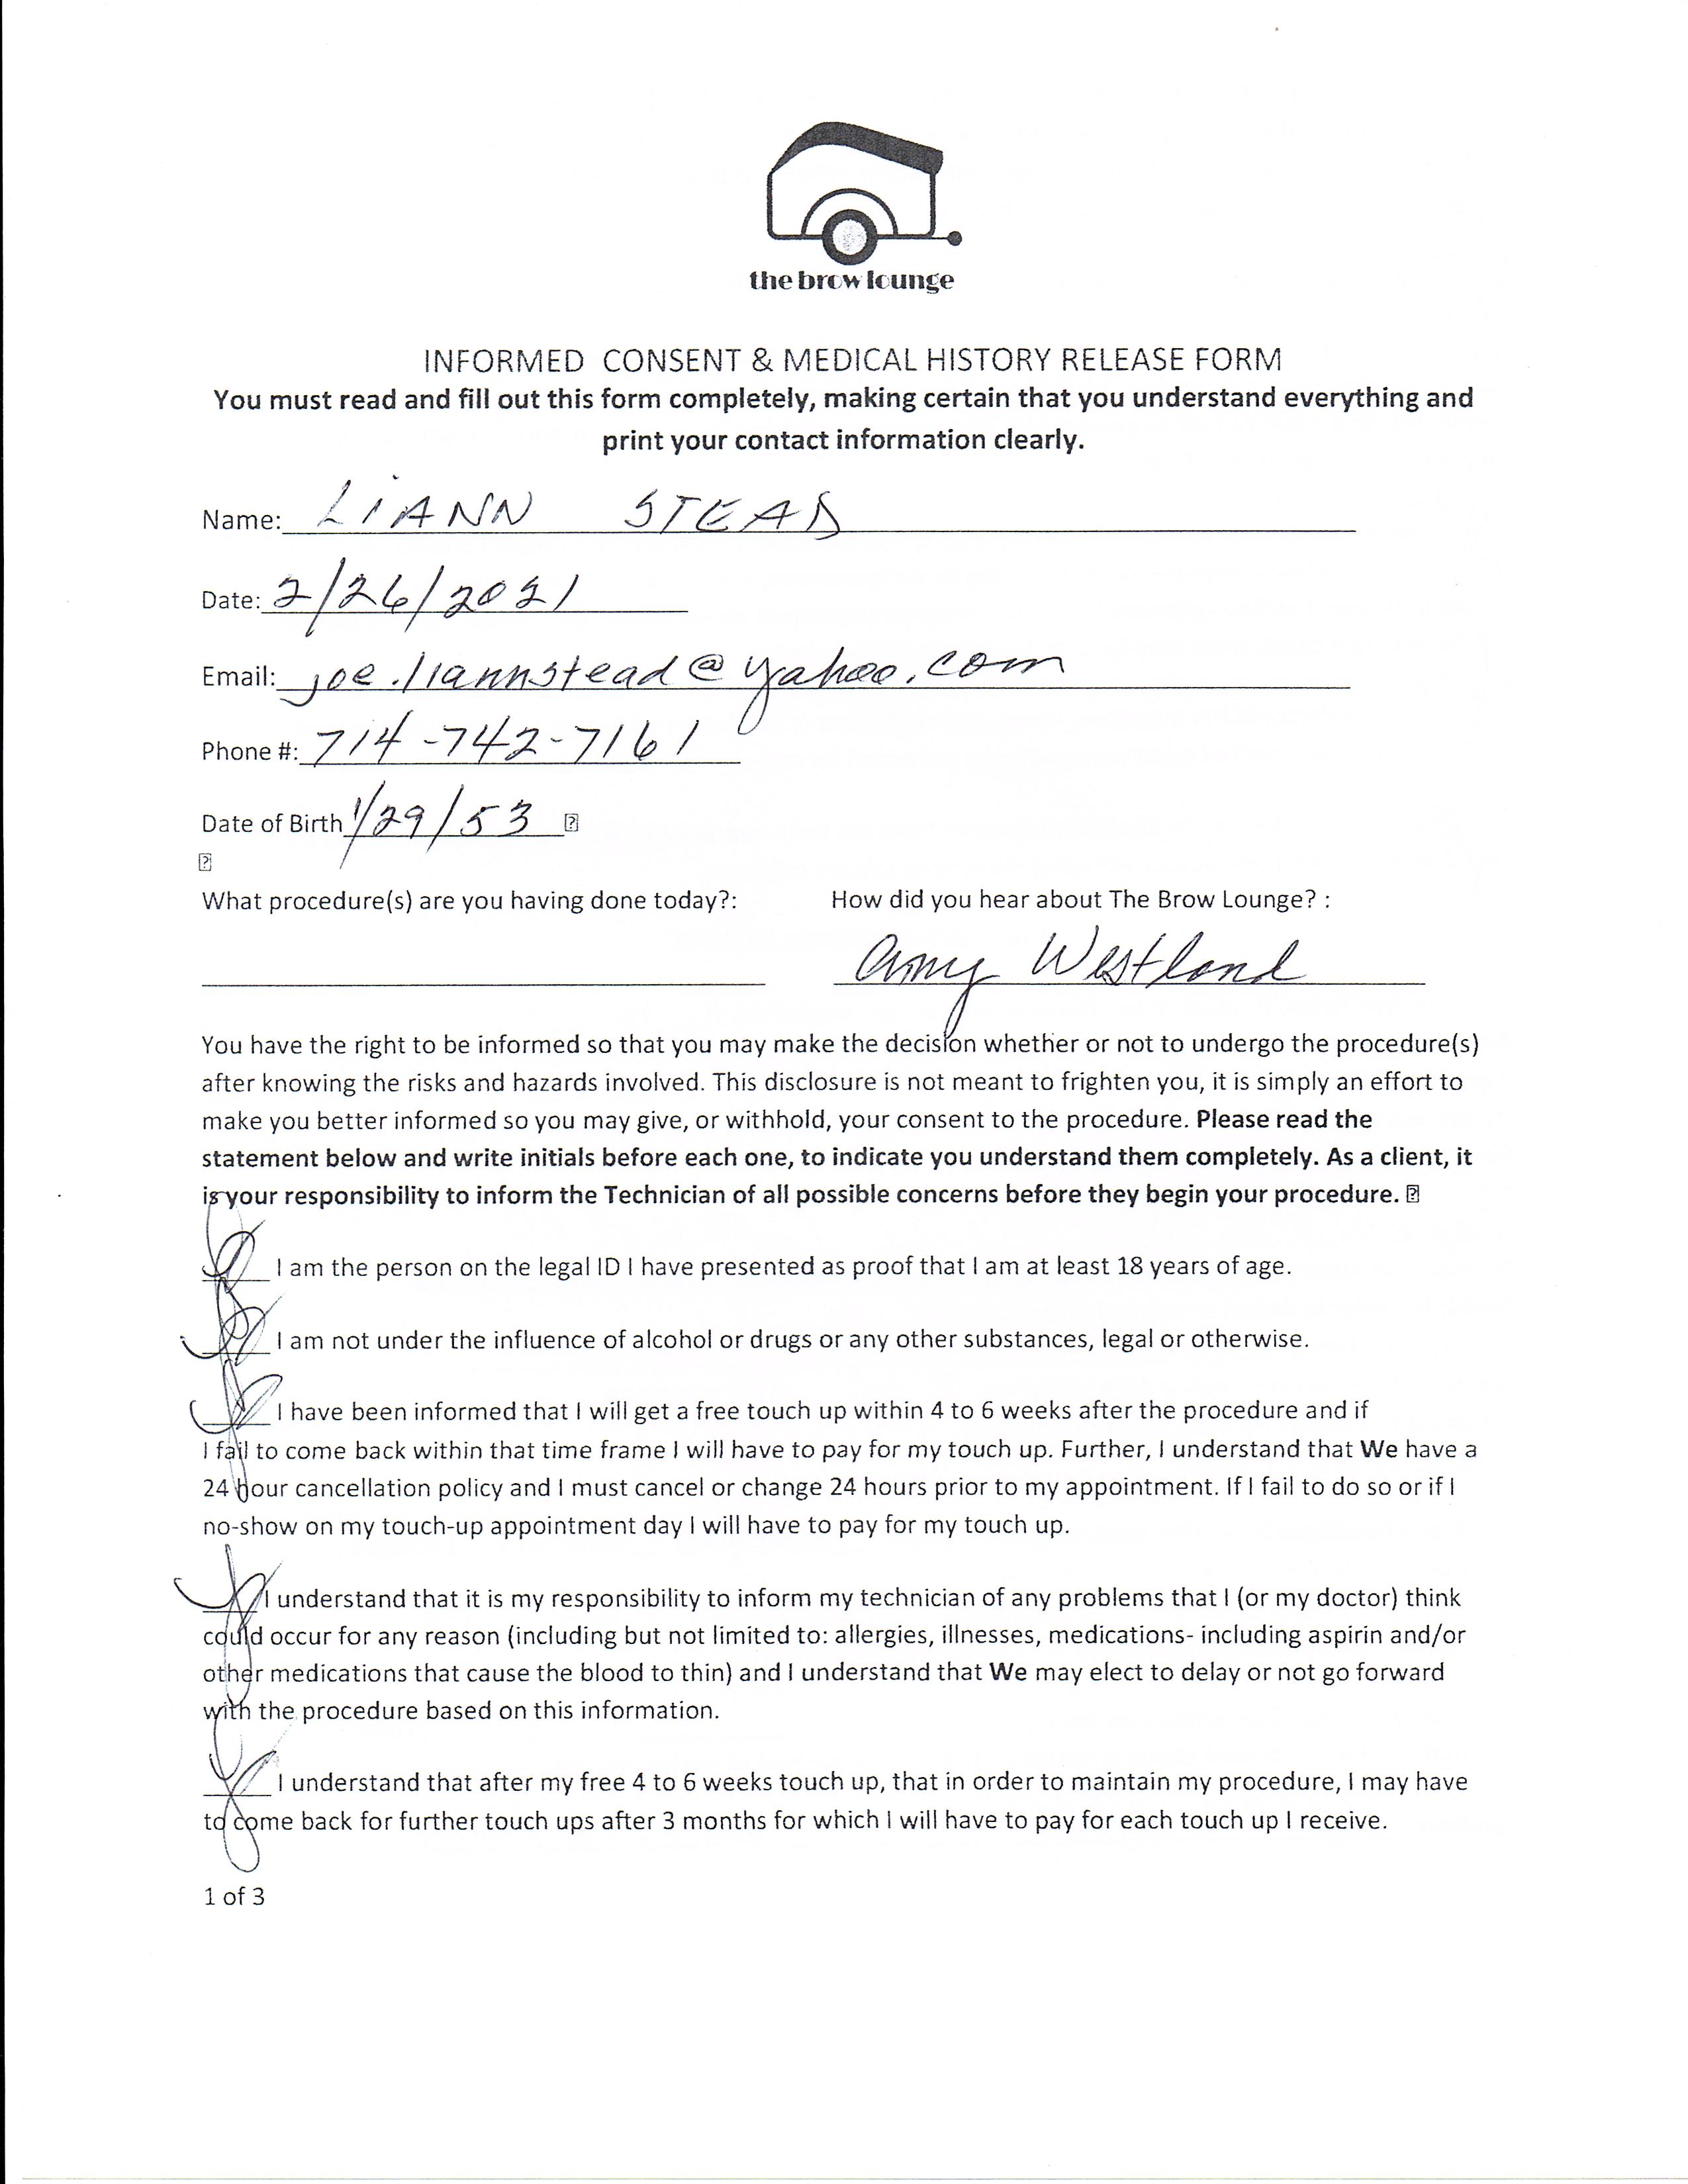 the brow lounge
INFORMED CONSENT & MEDICAL HISTORY RELEASE FORM
You must read and fill out this form completely, making certain that you understand everything and
print your contact information clearly.
Name: LiANN STEAD
Date: 2/26/2021
Email: joe.liannstead@yahoo.com
Phone #: 714-742-7161
Date of Birth 1/29/53
What procedure(s) are you having done today?: How did you hear about The Brow Lounge? :
Amy Westland
You have the right to be informed so that you may make the decision whether or not to undergo the procedure(s)
after knowing the risks and hazards involved. This disclosure is not meant to frighten you, it is simply an effort to
make you better informed so you may give, or withhold, your consent to the procedure. Please read the
statement below and write initials before each one, to indicate you understand them completely. As a client, it
is your responsibility to inform the Technician of all possible concerns before they begin your procedure.
I am the person on the legal ID I have presented as proof that I am at least 18 years of age.
I am not under the influence of alcohol or drugs or any other substances, legal or otherwise.
I have been informed that I will get a free touch up within 4 to 6 weeks after the procedure and if
I fail to come back within that time frame I will have to pay for my touch up. Further, I understand that We have a
24 hour cancellation policy and I must cancel or change 24 hours prior to my appointment. If I fail to do so or if I
no-show on my touch-up appointment day I will have to pay for my touch up.
I understand that it is my responsibility to inform my technician of any problems that I (or my doctor) think
could occur for any reason (including but not limited to: allergies, illnesses, medications- including aspirin and/or
other medications that cause the blood to thin) and I understand that We may elect to delay or not go forward
with the procedure based on this information.
I understand that after my free 4 to 6 weeks touch up, that in order to maintain my procedure, I may have
to come back for further touch ups after 3 months for which I will have to pay for each touch up I receive.
1 of 3